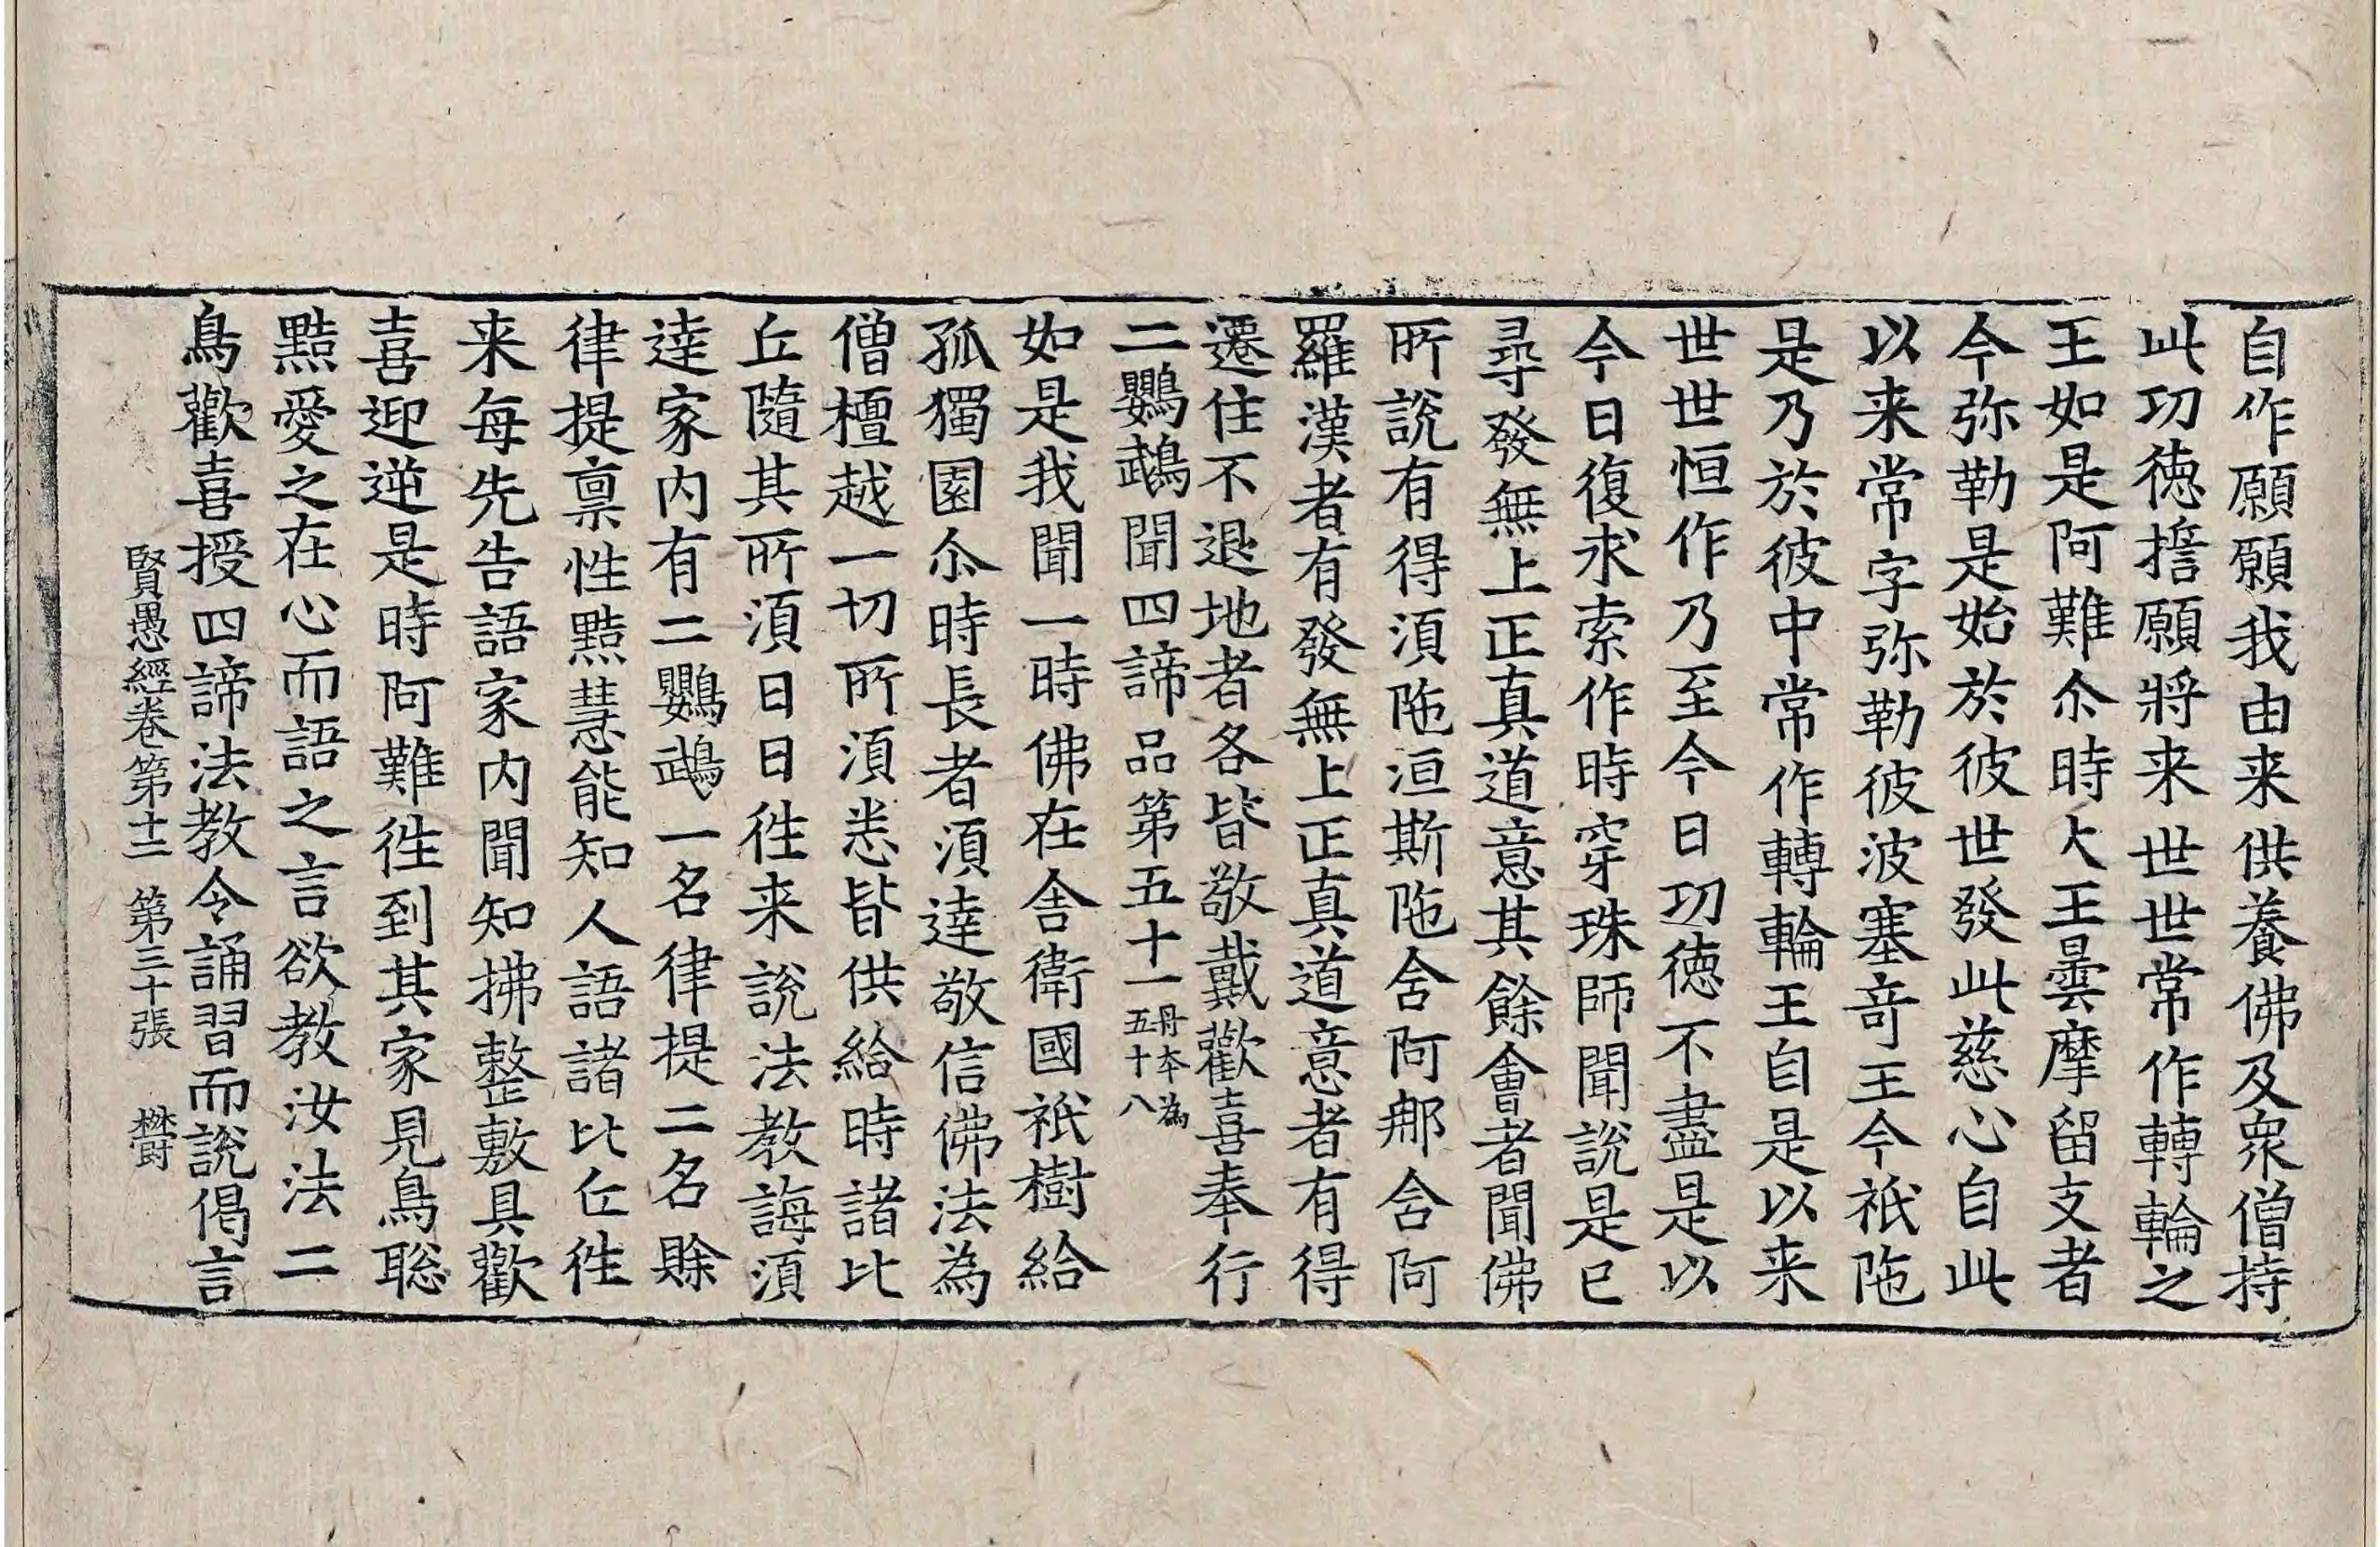 自作願願我由来供養佛及衆僧持
此功徳擔願將来世世常作轉輪之
王如是阿難尒時大王曇摩留支者
今弥勒是始於彼世發此慈心自此
以来常字弥勒彼波塞竒王今祇陁
是乃於彼中常作轉輪王自是以来
世世恒作乃至今日功徳不盡是以
今日復求索作時穿珠師聞說是已
尋發無上正真道意其餘會者聞佛
所說有得湏陁洹斯陁含阿那含阿
羅漢者有發無上正真道意者有得
遷住不退地者各皆敬戴歡喜奉行
二鸚鵡聞四諦品第五十一丹本為五十八
如是我聞一時佛在舎衛國祇樹給
孤獨園尒時長者湏達敬信佛法為
僧檀越一切所湏悉皆供給時諸比
丘隨其所湏日日往来說法教誨湏
達家内有二鸚鵡一名律提二名賖
律提禀性黠慧能知人語諸比丘往
来每先告語家内聞知拂整敷具歡
喜迎逆是時阿難往到其家見鳥聡
黠愛之在心而語之言欲教汝法二
鳥歡喜授四諦法教令誦習而說偈言
賢愚經卷第十二 第三十張 欝